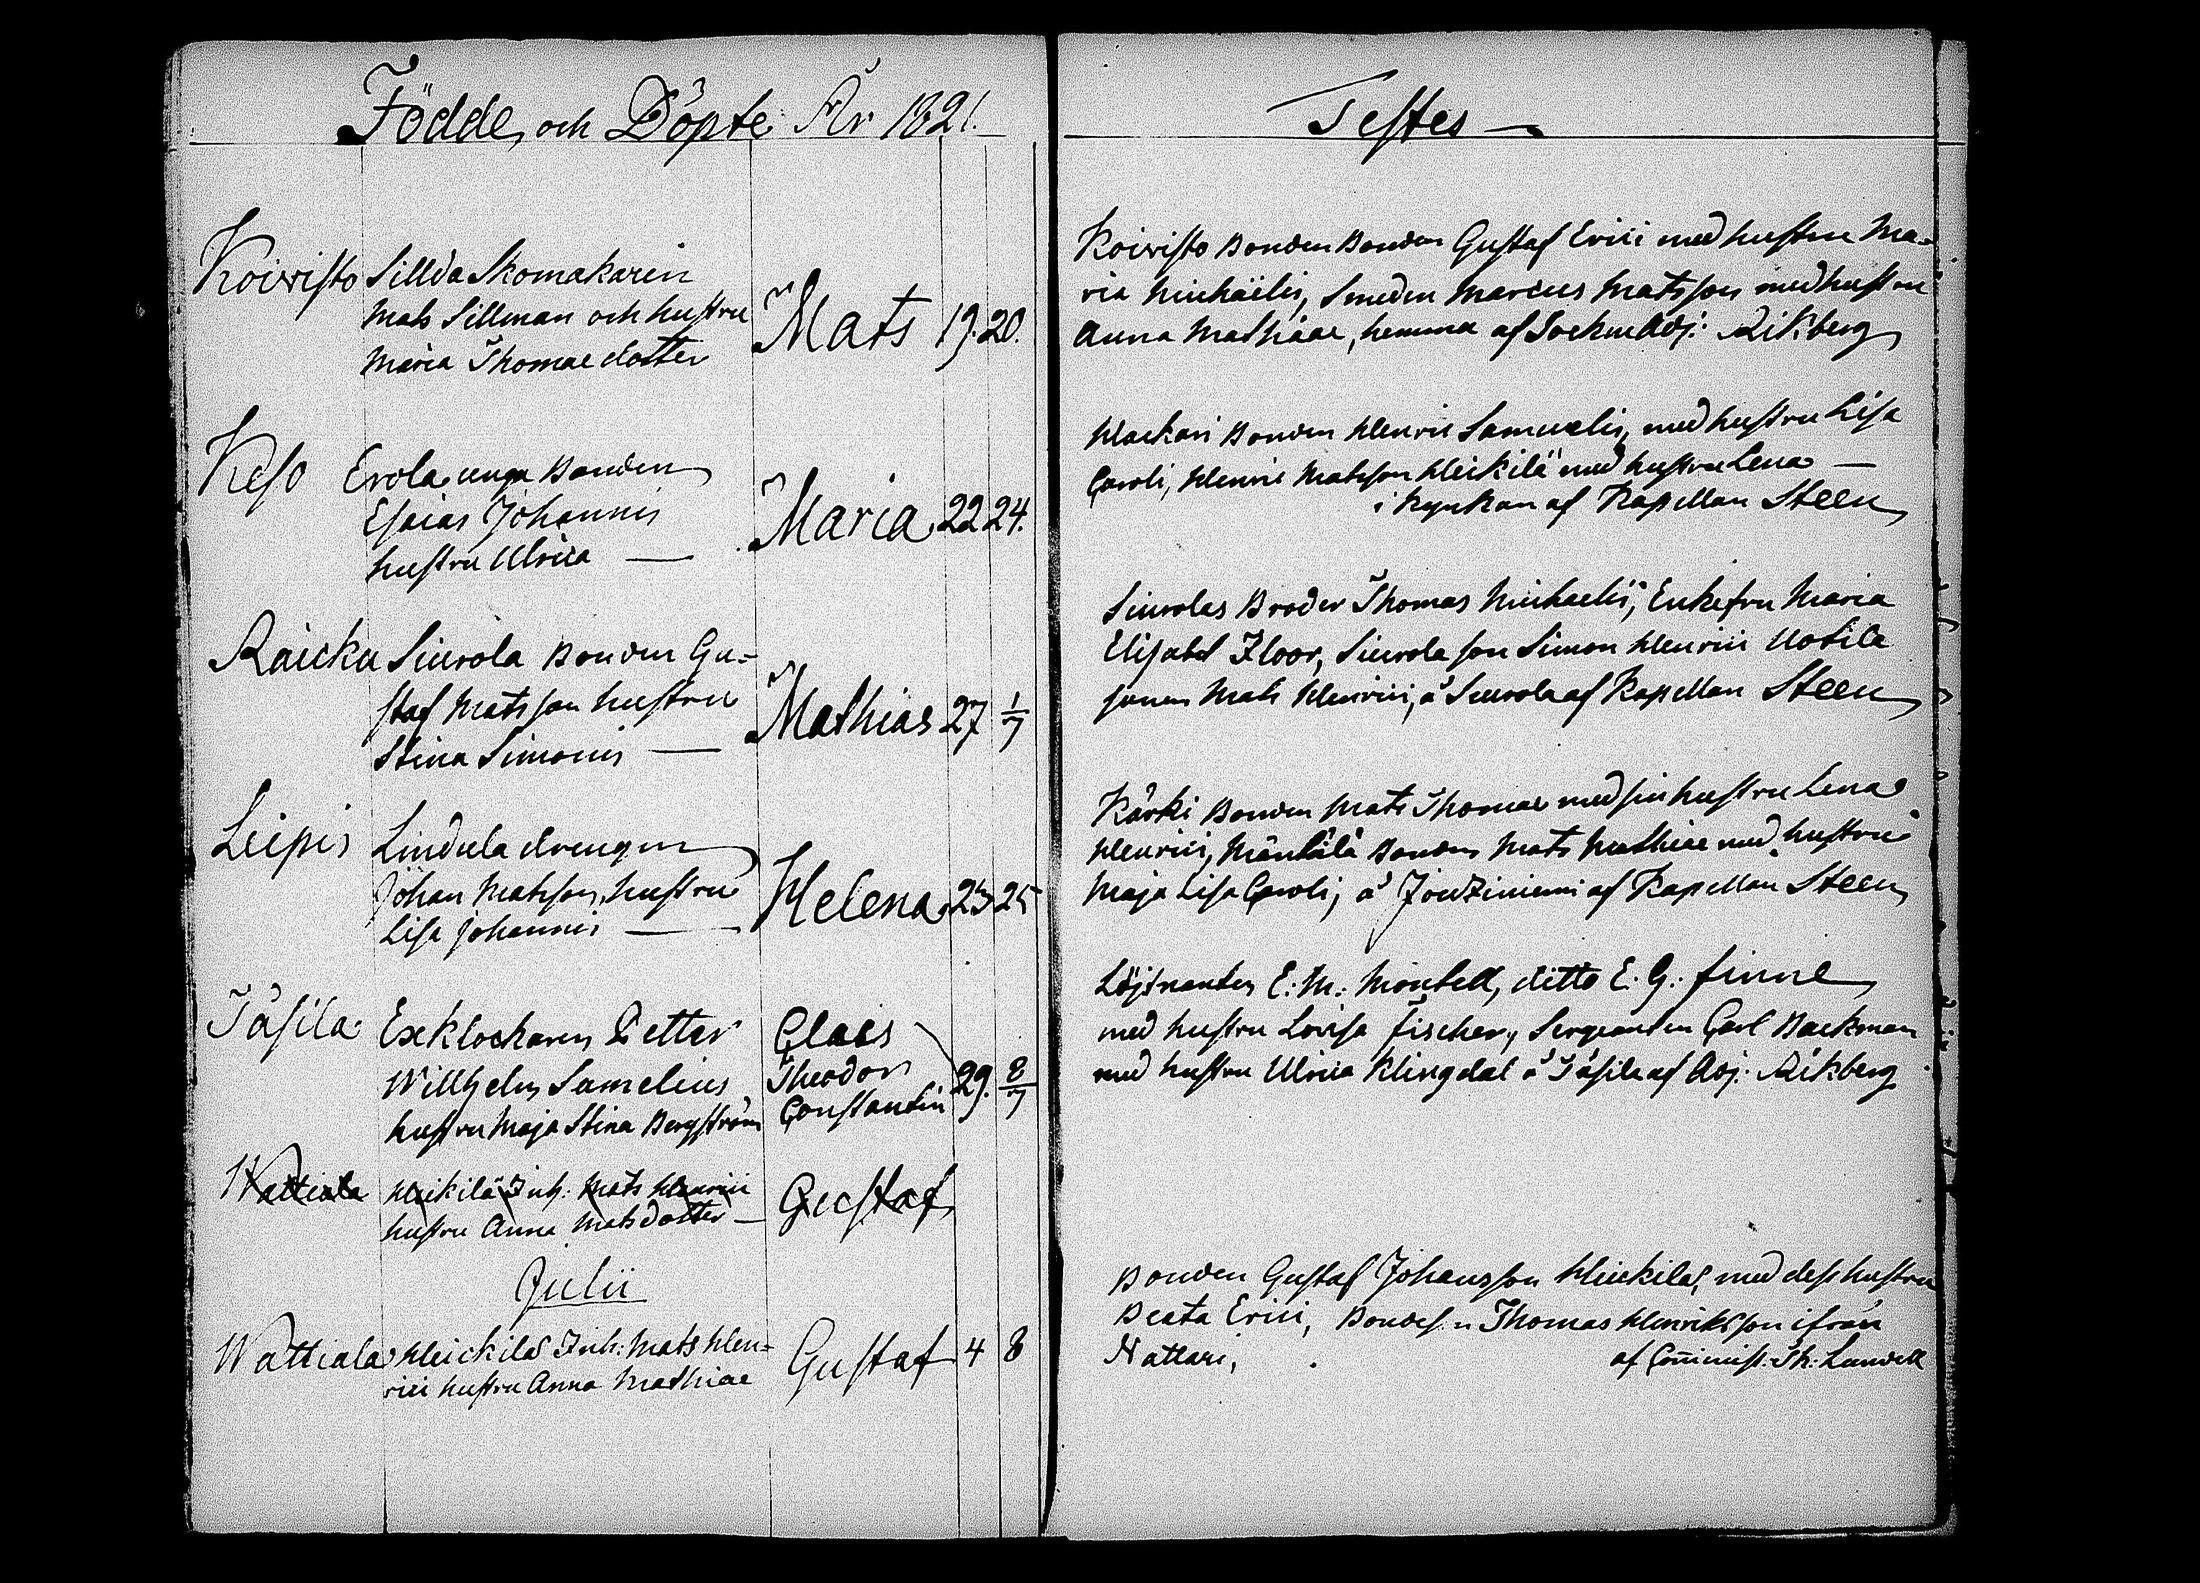 Födde, och Döpte År 1821.
Testes
Koivisto Sillda Skomakaren
Mats Sillman och hustru
Maria Thomae dotter
Mats 19. 20.
Koivisto Bonden Bonden Gustaf Erici med hustru Ma-
ria Michaëlis, Smeden Marcus Matsson med hustru
Anna Mathiae, hemma af Sockne Adj: Rikberg
Keso Erola unga Bonden
Esaias Johannis
hustru Ulrica —
Maria 22 24.
Bonden Henric Samuelis, med hustru Lisa
Caroli, Henric Matsson Heikilä med hustru Lena —
i Kyrkan af Kapellan Steen
Raicku Siurola Bonden Gu-
staf Matsson hustru
Stina Simonis —
Mathias 27 1/7
Siurolas Broder Thomas Michaelis, Enkefru Maria
Elisabet Floor, Siurola son Simon Henrici Uotila
sonen Mats Henrici, å Siurola af Kapellan Steen
Leipis Lindula drengen
Johan Matsson, hustru
Lisa Johannis —
Helena 23 25
Kärki Bonden Mats Thomae med sin hustru Lena
Henrici, Mäntälä Bonden Mats Mathiae med hustru
Maja Lisa Caroli, å af Kapellan Steen
Täsila Exklockaren Petter
Willhelm Samelius
hustru Maja Stina Bergström
Claës
Theodor
Constantin
29. 8/7
Löjtnanten E: M: Montell, ditto E. G: Finne
med hustru Lovisa Fischer, Sergeanten Carl Backman
med hustru Ulrica Klingdal å Täsila af Adj: Rikberg
Wattiala Heikilä Inh: Mats Henrici
hustru Anna Matsdotter —
Gustaf
Julii
Wattiala Heickilä Inh: Mats Hen-
rici hustru Anna Mathiae
Gustaf 4 8
Bonden Gustaf Johansson Heickilä, med dess hustru
Beata Erici, Bondes: n Thomas Henriksson ifrån
Nattari, af Com̄inist: Th: Lunvell